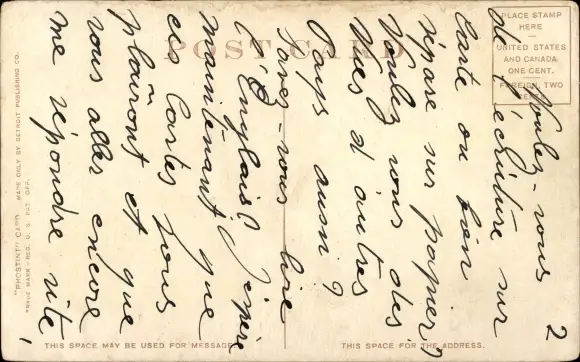 POST CARD
PLACE STAMP
HERE
UNITED STATES
AND CANADA
ONE CENT.
FOREIGN, TWO
CENTS.
2
Voulez-vous
de l'écriture sur
Carte ou bien
séparé sur papier?
Voulez vous des
vues d'autres
Pays aussi?
Savez-vous lire
l'Englais? J'espère
maintenant que
ces Cartes vous
plairont et que
vous aller encore
me répondre vite,
THIS SPACE MAY BE USED FOR MESSAGE
THIS SPACE FOR THE ADDRESS.
"PHOSTINT" CARD MADE ONLY BY DETROIT PUBLISHING CO.
TRADE MARK-REG. U. S. PAT. OFF.